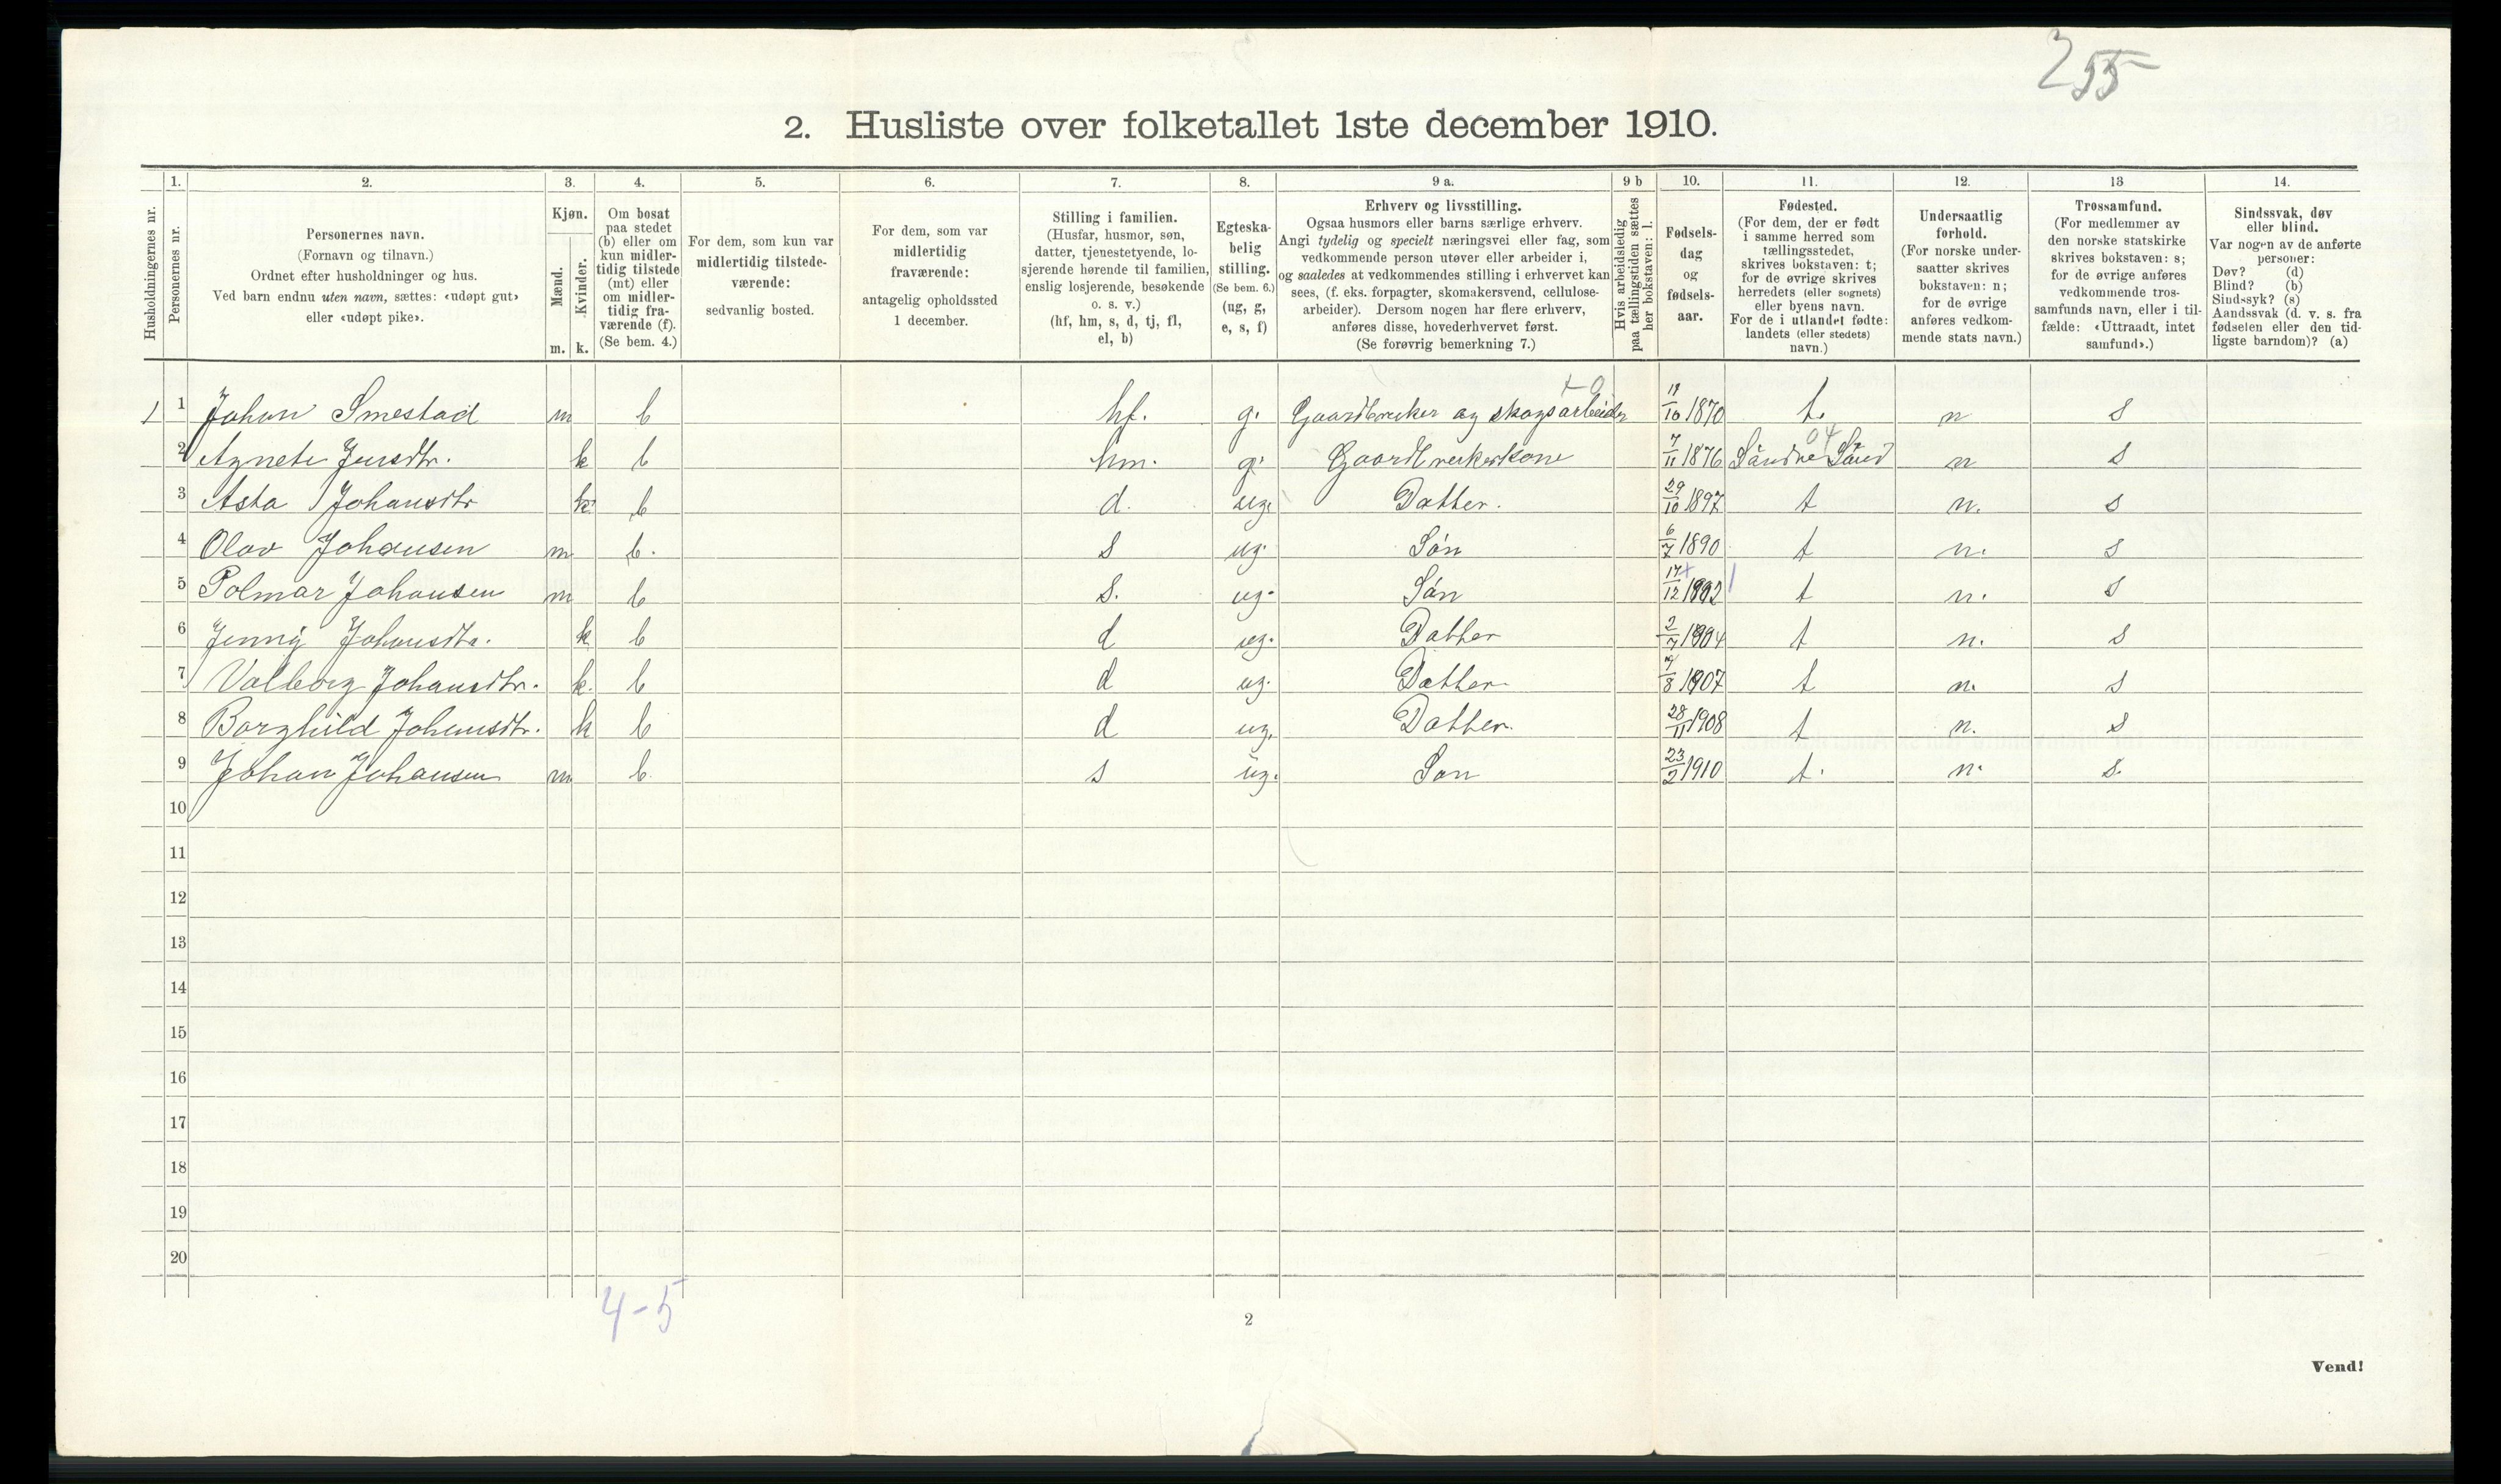 255
2. Husliste over folketallet 1ste december 1910.
Husholdningernes nr.
1.
Personernes nr.
2.
Personernes navn.
(Fornavn og tilnavn.)
Ordnet efter husholdninger og hus.
Ved barn endnu uten navn, sættes: «udøpt gut»
eller «udøpt pike».
3.
Kjøn.
Mænd.
Kvinder.
m. k.
4.
Om bosat
paa stedet
(b) eller om
kun midler-
tidig tilstede
(mt) eller
om midler-
tidig fra-
værende (f).
(Se bem. 4.)
5.
For dem, som kun var
midlertidig tilstede-
værende:
sedvanlig bosted.
6.
For dem, som var
midlertidig
fraværende:
antagelig opholdssted
1 december.
7.
Stilling i familien.
(Husfar, husmor, søn,
datter, tjenestetyende, lo-
sjerende hørende til familien,
enslig losjerende, besøkende
o. s. v.)
(hf, hm, s, d, tj, fl,
el, b)
8.
Egteska-
belig
stilling.
(Se bem. 6.)
(ug, g,
e, s, f)
9 a.
Erhverv og livsstilling.
Ogsaa husmors eller barns særlige erhverv.
Angi tydelig og specielt næringsvei eller fag, som
vedkommende person utøver eller arbeider i,
og saaledes at vedkommendes stilling i erhvervet kan
sees, (f. eks. forpagter, skomakersvend, cellulose-
arbeider). Dersom nogen har flere erhverv,
anføres disse, hovederhvervet først.
(Se forøvrig bemerkning 7.)
9 b
Hvis arbeidsledig
paa tællingstiden sættes
her bokstaven: l.
10.
Fødsels-
dag
og
fødsels-
aar.
11.
Fødested.
(For dem, der er født
i samme herred som
tællingsstedet,
skrives bokstaven: t;
for de øvrige skrives
herredets (eller sognets)
eller byens navn.
For de i utlandet fødte:
landets (eller stedets)
navn.)
12.
Undersaatlig
forhold.
(For norske under-
saatter skrives
bokstaven: n;
for de øvrige
anføres vedkom-
mende stats navn.)
13
Trossamfund.
(For medlemmer av
den norske statskirke
skrives bokstaven: s;
for de øvrige anføres
vedkommende tros-
samfunds navn, eller i til-
fælde: «Uttraadt, intet
samfund».)
14.
Sindssvak, døv
eller blind.
Var nogen av de anførte
personer:
Døv? (d)
Blind? (b)
Sindssyk? (s)
Aandssvak (d. v. s. fra
fødselen eller den tid-
ligste barndom)? (a)
1 1 Johan Smestad m b hf. g. Gaardbruker og skogsarbeider 11/10 1870 t. n s
2 Agnete Jensdtr. k b hm. g. Gaardbrukerkone 7/11 1876 Søndre n s
3 Asta Johansdtr k b d. ug. Datter. 29/10 1897 t n. s
4 Olav Johansen m b. s ug. Søn 6/7 1890 t n. s
5 Polmar Johansen m b s. ug. Søn 17/12 t n. s
6 Jenny Johansdtr. k b d ug. Datter 2/7 1904 t n. s
7 Valborg Johansdtr. k. b d ug. Datter 1907 t n. s
8 Borghild Johansdtr. k b d ug. Datter. 28/11 1908 t n. s
9 Johan Johansen m b. s ug. Søn 23/2 1910 t. n. s.
10
11
12
13
14
15
16
17
18
19
20
4-5
2
Vend!